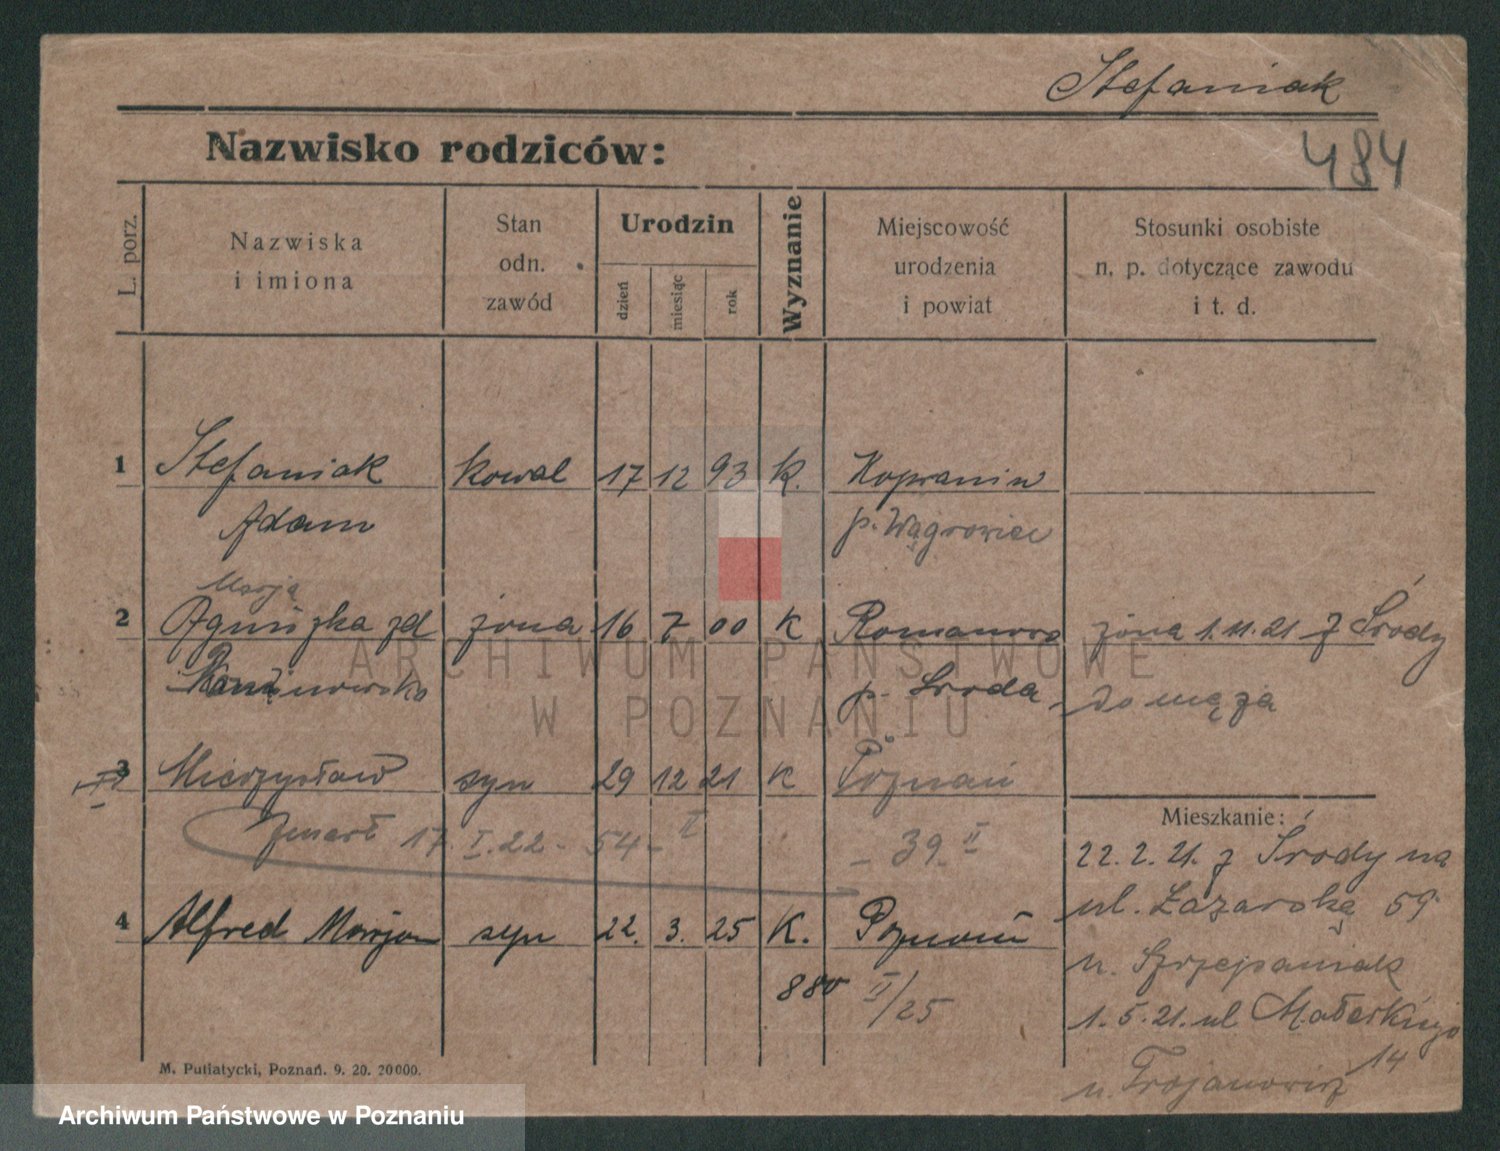 Stefaniak
Nazwisko rodziców:
484
L. porz.
Nazwiska
i imiona
Stan
odn.
zawód
Urodzin
dzień
miesiąc
rok
Wyznanie
Miejscowość
urodzenia
i powiat
Stosunki osobiste
n. p. dotyczące zawodu
i t. d.
1 Stefaniak kowal 17 12 93 K. Kopanin
Adam p. Wągrowiec
Marja
2 Agniszka zd żona 16 7 00 K Romanowo żona 1.11.21 z Środy
p. Środa do męża
3 Mieczysław syn 29 12 21 K Poznań
zmarł 17.I.22 - 54 - II - 39 II
Mieszkanie:
22.2.21. z Środy na
ul. Łazarską 59
4 Alfred Marjan syn 22. 3. 25 K. Poznań
u. Szczepaniak
880 II/25
1.5.21. ul Małeckiego
14
u. Trojanowicz
M. Putiatycki, Poznań. 9. 20. 20000.
ARCHIWUM PAŃSTWOWE
W POZNANIU
Archiwum Państwowe w Poznaniu